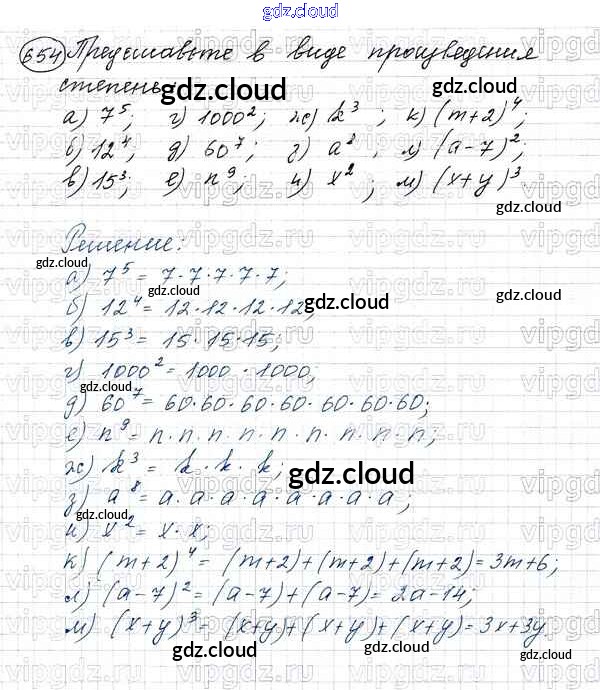 gdz.cloud
654 Представьте в виде произведения
степень:
gdz.cloud
а) 7⁵; г) 1000²; ж) k³; к) (m+2)⁴;
б) 12⁴; д) 60⁷; з) a⁸; л) (a-7)²;
в) 15³; е) n⁹; и) x²; м) (x+y)³.
gdz.cloud
Решение:
gdz.cloud
а) 7⁵ = 7·7·7·7·7;
gdz.cloud
б) 12⁴ = 12·12·12·12;
gdz.cloud
в) 15³ = 15·15·15;
gdz.cloud
г) 1000² = 1000·1000;
gdz.cloud
д) 60⁷ = 60·60·60·60·60·60·60;
е) n⁹ = n·n·n·n·n·n·n·n·n;
ж) k³ = k·k·k;
gdz.cloud
з) a⁸ = a·a·a·a·a·a·a·a;
gdz.cloud
и) x² = x·x;
к) (m+2)⁴ = (m+2)+(m+2)+(m+2) = 3m+6;
л) (a-7)² = (a-7)+(a-7) = 2a-14;
м) (x+y)³ = (x+y)+(x+y)+(x+y) = 3x+3y
gdz.cloud
gdz.cloud
gdz.cloud